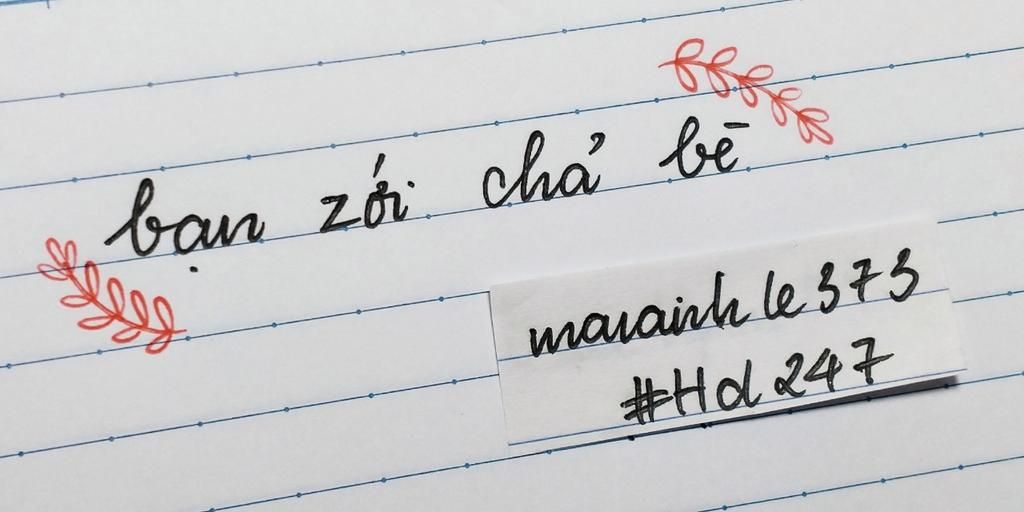 bạn zới chả bè
maiainh le 373
#Hd 247